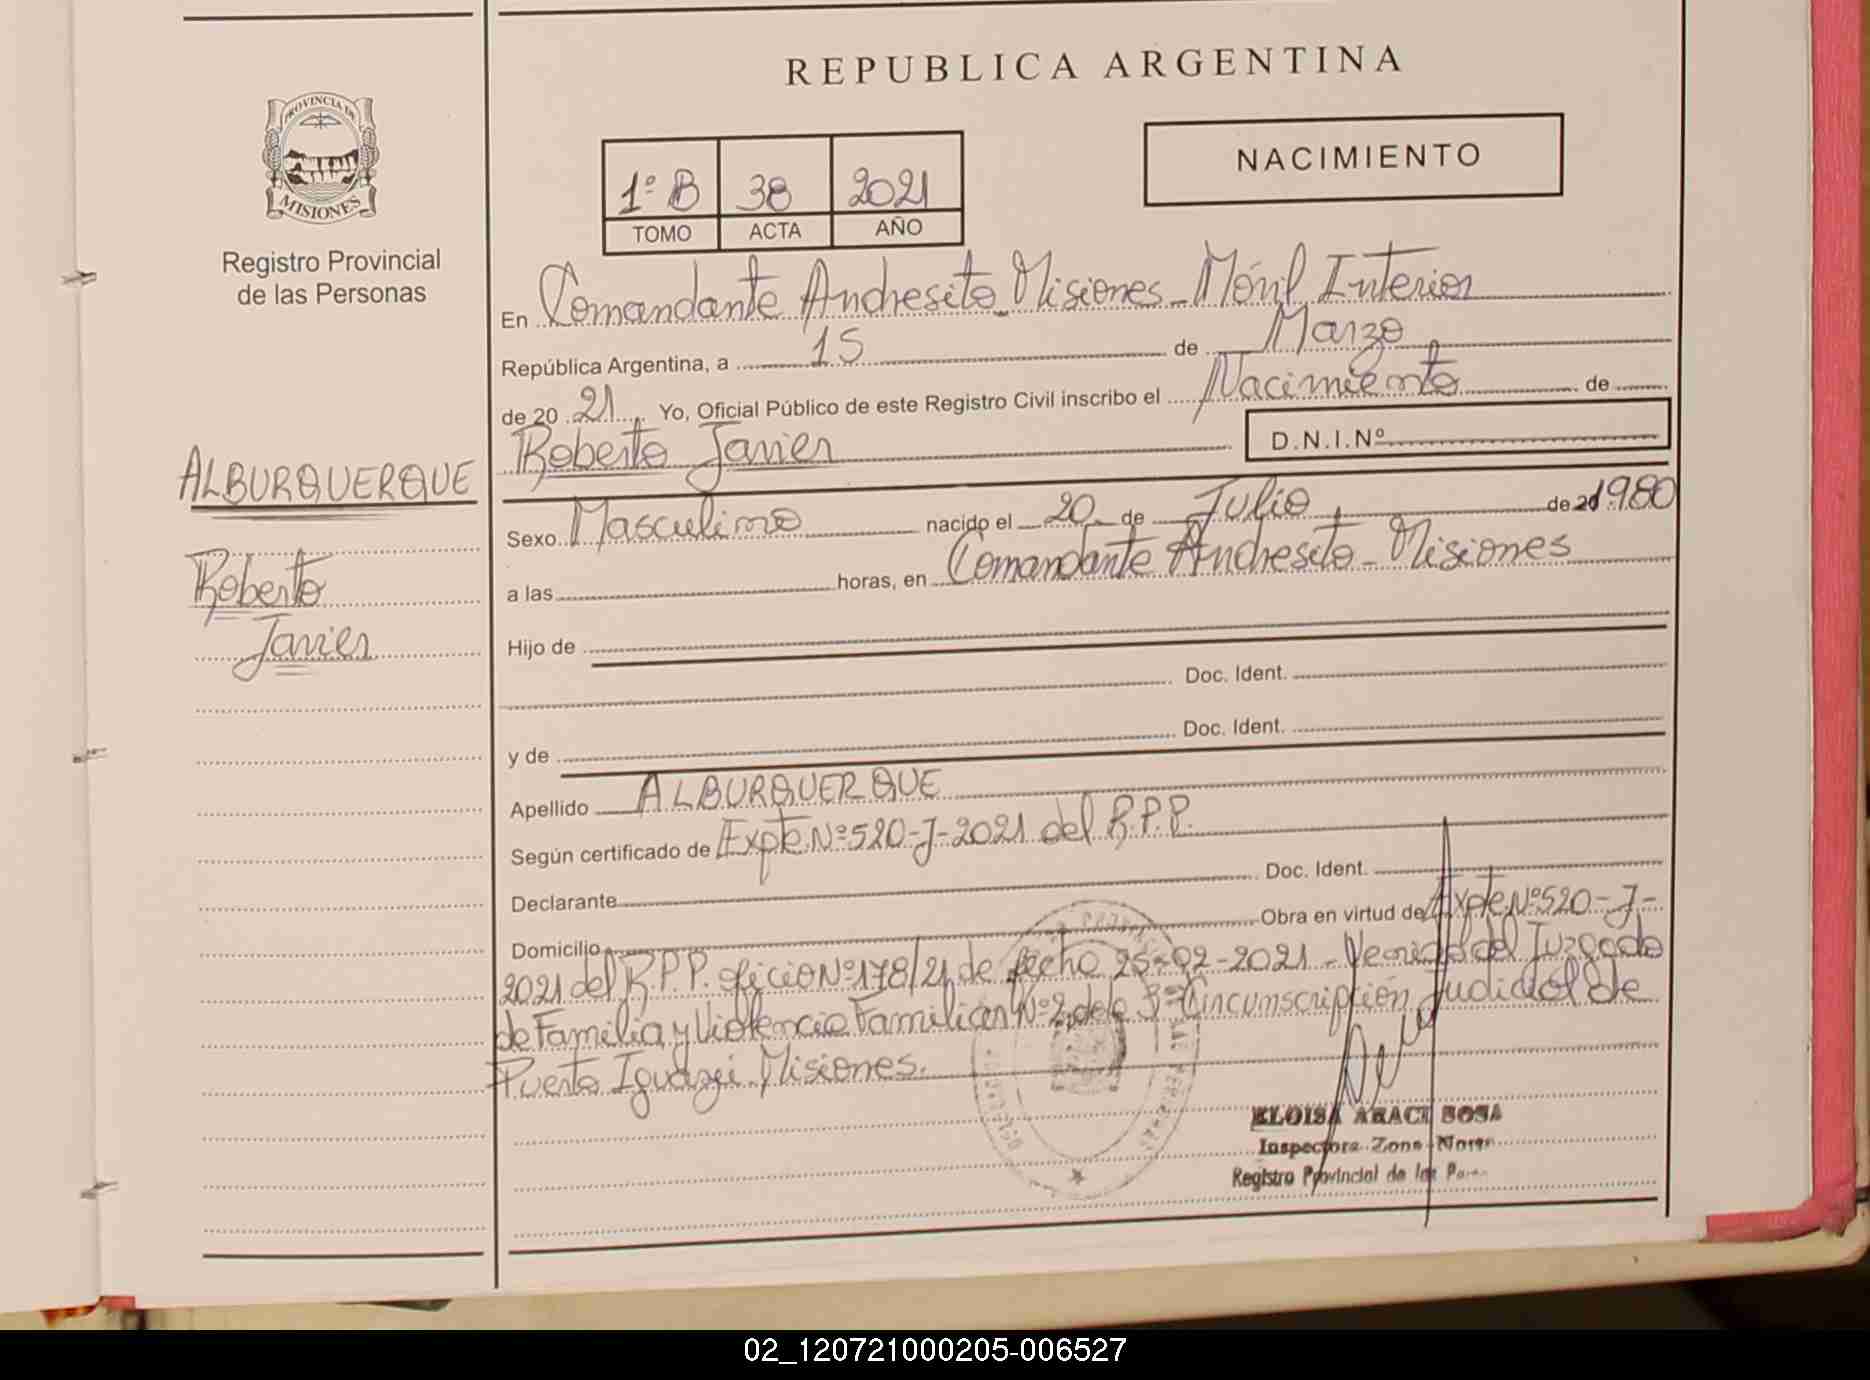 REPUBLICA ARGENTINA
PROVINCIA DE
MISIONES
Registro Provincial
de las Personas
NACIMIENTO
1º B 38 2021
TOMO ACTA AÑO
En Comandante Andresito Misiones - Móvil Interior
República Argentina, a 15 de Marzo
de 20 21 Yo, Oficial Público de este Registro Civil inscribo el Nacimiento de
Roberto Javier D.N.I.Nº
ALBURQUERQUE
Roberto
Javier
Sexo Masculino nacido el 20 de Julio de 1980
a las horas, en Comandante Andresito - Misiones
Hijo de
Doc. Ident.
y de Doc. Ident.
Apellido ALBURQUERQUE
Según certificado de Expte Nº 520-J-2021 del R.P.P.
Declarante Doc. Ident.
Domicilio Obra en virtud de Expte Nº 520-J-
2021 del R.P.P. oficio Nº 178/21 de fecha 25-02-2021 - del Juzgado
de Familia y Violencia Familiar Nº 2 de la 3º Circunscripción Judicial de
Puerto Iguazú Misiones.
ELOISA ARACI SOSA
Inspectora Zona Norte
Registro Provincial de las
02_120721000205-006527